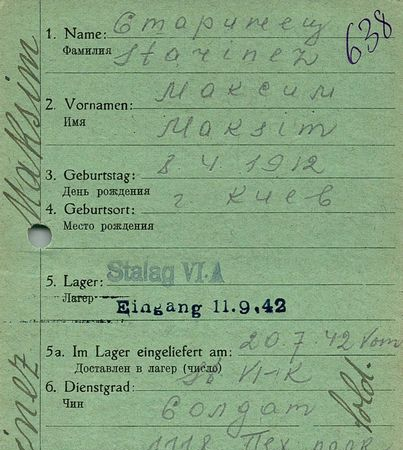 638
Старинец
1. Name:
Фамилия
Starinez
Максим
2. Vornamen:
Имя
Maksim
3. Geburtstag: 8 4 1912
День рождения
г. Киев
4. Geburtsort:
Место рождения
5. Lager: Stalag VI A
Лагерь
Eingang 11.9.42
5a. Im Lager eingeliefert am: 20.7.42 Vom
Доставлен в лагерь (число)
VI-K
6. Dienstgrad:
Чин
Солдат
Sold.
Maksim